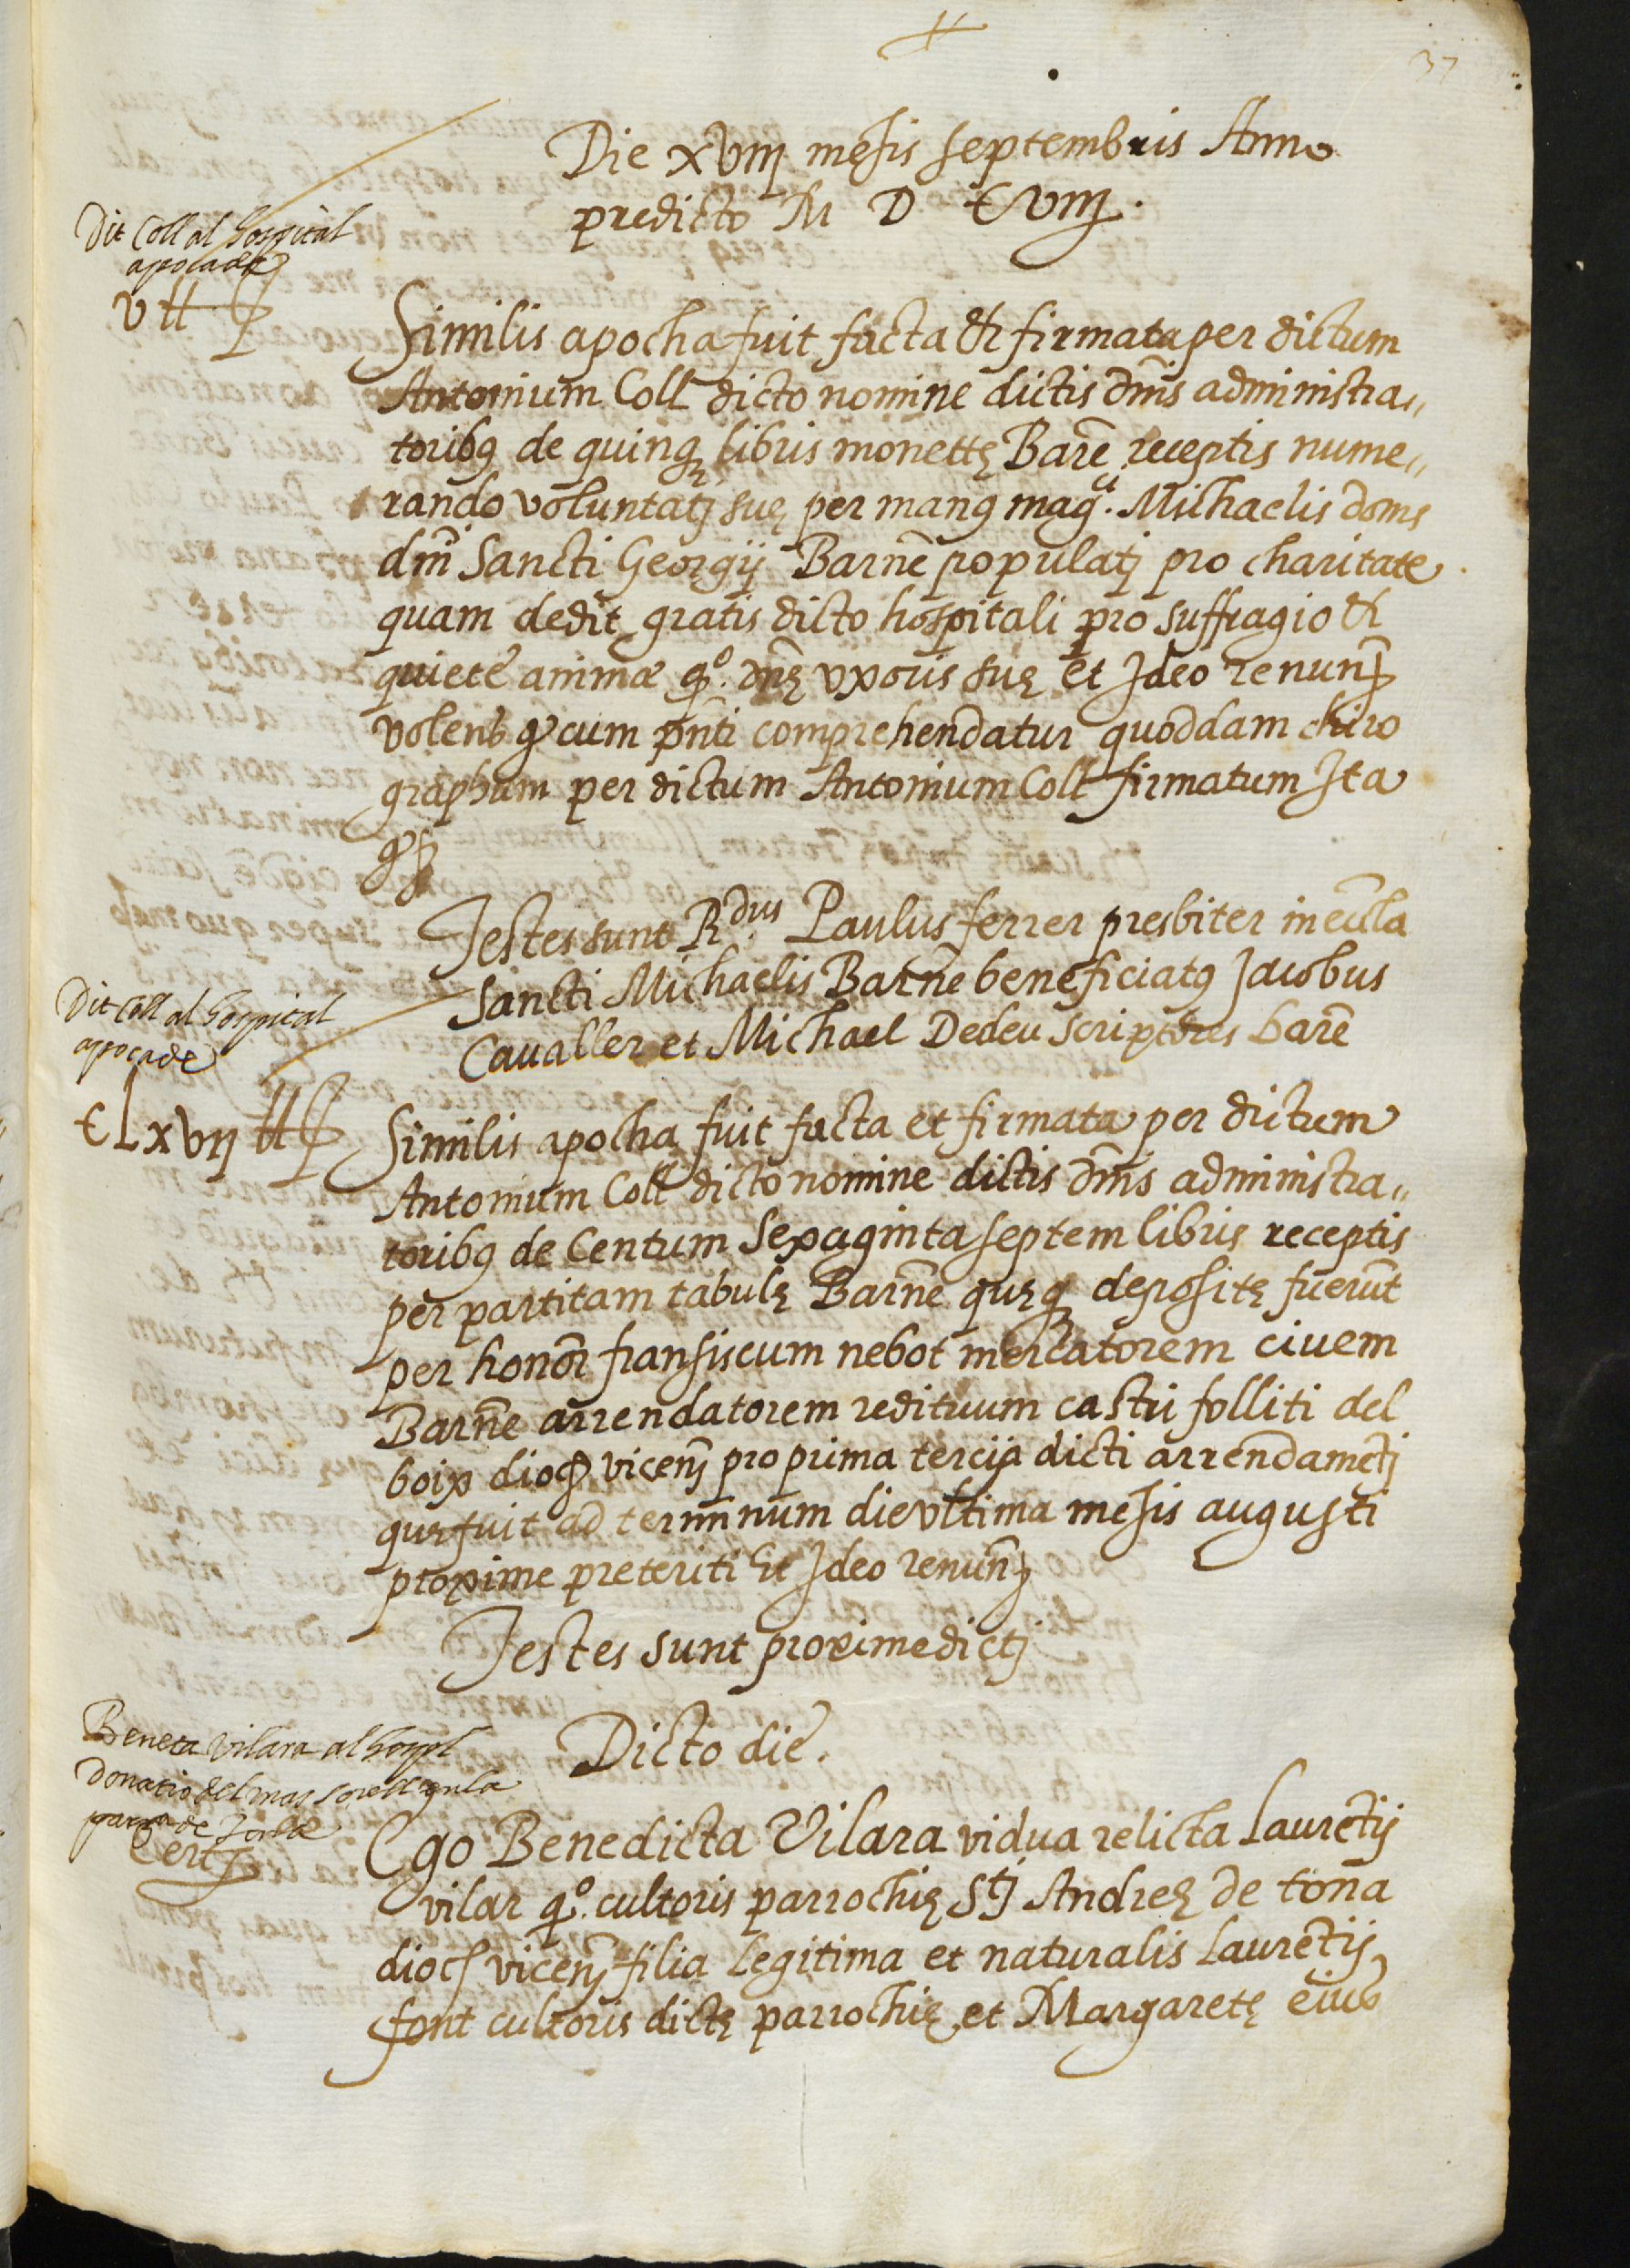 37
Die xviij mẽsis septembris Anno
predicto M D Cviij.
Dit Coll al hospital
apoca de
v ₶
Similis apocha fuit facta & firmata per dictum
Antonium Coll dicto nomine dictis dñis administra„
toribꝯ de quinqꝫ libris monettę Barẽ receptis nume„
rando voluntatj suę per manꝯ magci. Michaelis doms
dñi Sancti Georgij Barnẽ populatj pro charitate
quam dedit gratis dicto hospitali pro suffragio &
quiete animæ qo. dñę vxoris suę et Jdeo renunẽ
volens qɋ cum pñti comprehendatur quoddam chiro
graphum per dictum Antonium Coll firmatum Ita
Testes sunt Rdus. Paulus ferrer presbiter in ecĩla
Sancti Michaelis Barnẽ beneficiatꝯ Jacobus
Caualler et Michael Dedeu scriptores barẽ
Dit Coll al hospital
apoca de
CLxvij ₶
Similis apocha fuit facta et firmata per dictum
Antonium Coll dicto nomine dictis dñis administra„
toribꝯ de Centum Sexaginta septem libris receptis
per partitam tabulę Barnẽ quęqꝫ depositę fuerũt
per honor̃ fransiscum nebot mercatorem ciuem
Barnẽ arrendatorem redituum castri folliti del
boix dioc̃ vicen̄ pro prima tercija dicti arrendamẽtj
quę fuit ad terminum die vltima mẽsis augusti
proxime preteriti Et Jdeo renunẽ
Testes sunt proxime dictj
Dicto die.
Beneta Vilara al hospl
donatio del mas sorell en la
parrа de Tona
Cert
Ego Benedicta Vilara vidua relicta Laurẽtij
vilar qo. cultoris parrochię Stj Andreę de tona
dioc̃ vicen̄ filia legitima et naturalis Laurẽtij
font cultoris dictę parrochię et Margaretę eius